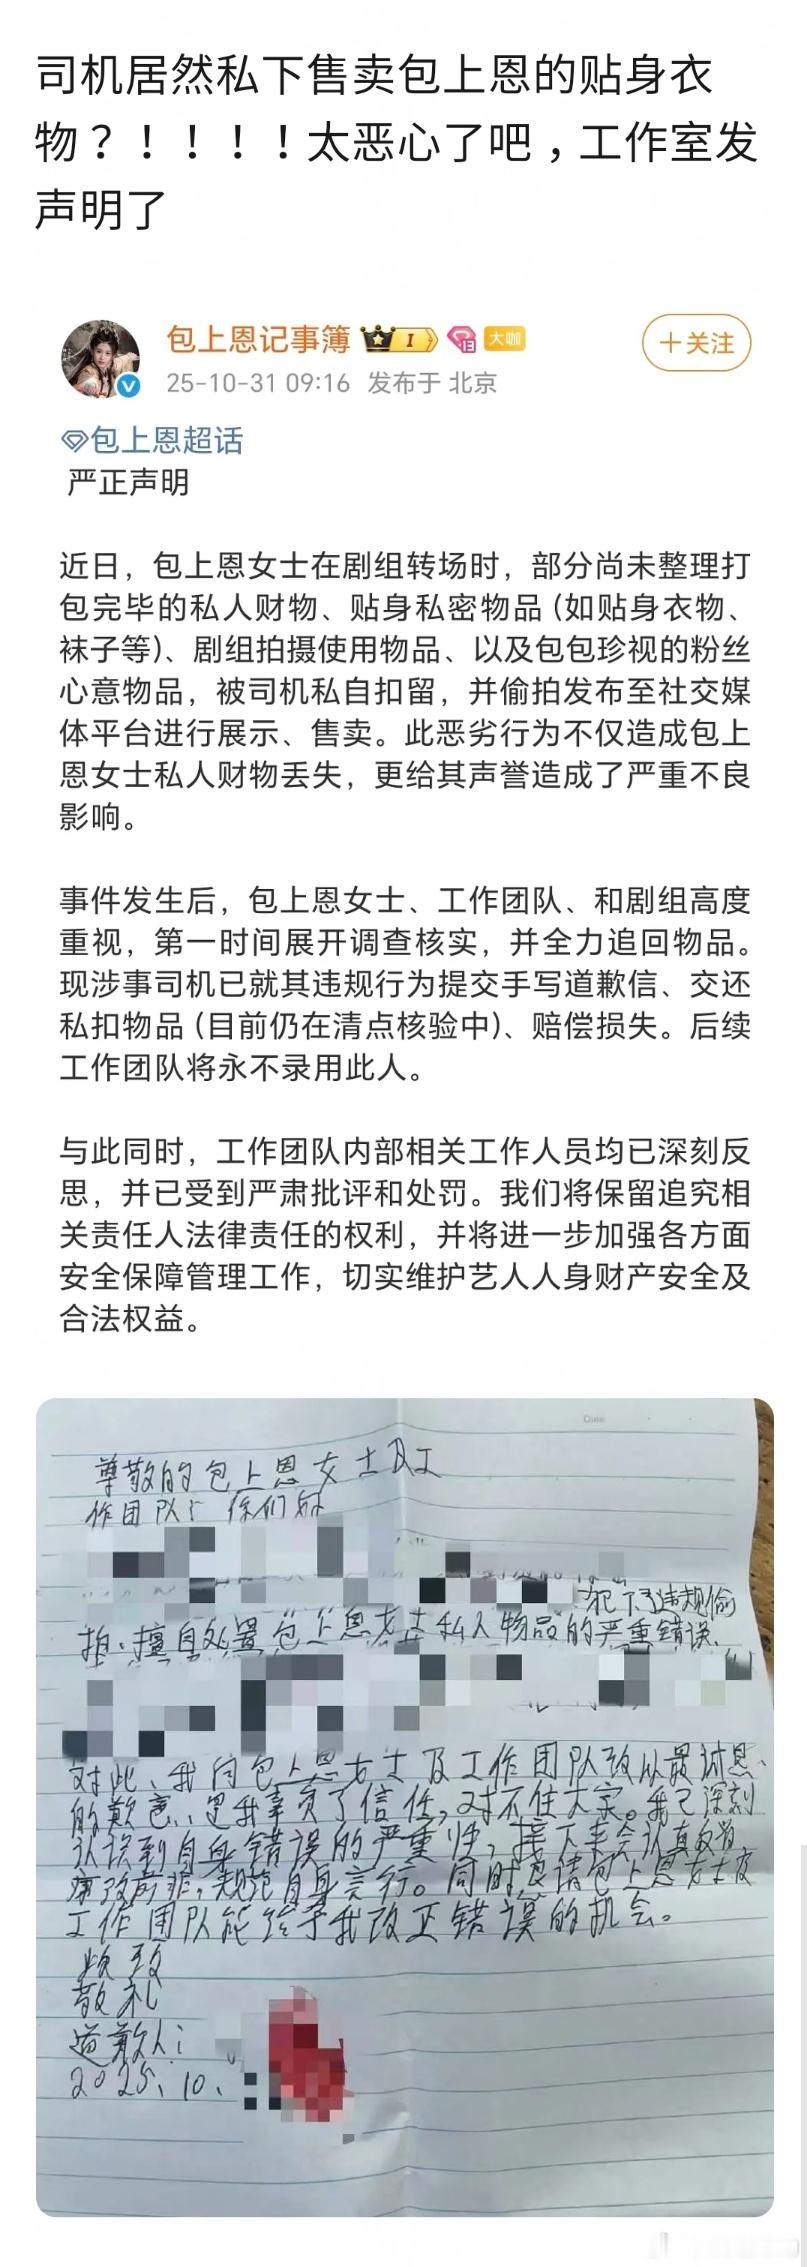 司机居然私下售卖包上恩的贴身衣
物？！！！！！太恶心了吧，工作室发
声明了
包上恩记事簿 I 13 大咖
+关注
25-10-31 09:16 发布于 北京
包上恩超话
严正声明
近日，包上恩女士在剧组转场时，部分尚未整理打
包完毕的私人财物、贴身私密物品(如贴身衣物、
袜子等)、剧组拍摄使用物品、以及包包珍视的粉丝
心意物品，被司机私自扣留，并偷拍发布至社交媒
体平台进行展示、售卖。此恶劣行为不仅造成包上
恩女士私人财物丢失，更给其声誉造成了严重不良
影响。
事件发生后，包上恩女士、工作团队、和剧组高度
重视，第一时间展开调查核实，并全力追回物品。
现涉事司机已就其违规行为提交手写道歉信、交还
私扣物品(目前仍在清点核验中)、赔偿损失。后续
工作团队将永不录用此人。
与此同时，工作团队内部相关工作人员均已深刻反
思，并已受到严肃批评和处罚。我们将保留追究相
关责任人法律责任的权利，并将进一步加强各方面
安全保障管理工作，切实维护艺人人身财产安全及
合法权益。
Date
尊敬的包上恩女士及工
作团队：你们好
犯下了违规偷
拍、擅自处置包上恩女士私人物品的严重错误、
对此、我向包上恩女士及工作团队致以最诚恳、
的歉意、是我辜负了信任,对不住大家。我已深刻
认识到自身错误的严重性,接下来会认真反省
痛改前非,规范自身言行。同时恳请包上恩女士及
工作团队能给予我改正错误的机会。
此致
敬礼
道歉人：
2025、10、